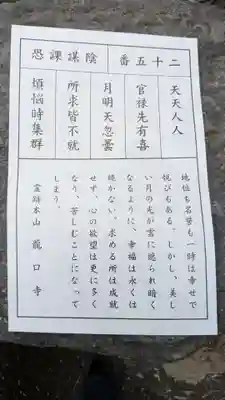 二十五番
天天人人
官禄先有喜
月明天忽曇
陰謀課恐
所求皆不就
煩悩時集群
地位も名誉も一時は幸せで
悦びもある。しかし、美し
い月の光が雲に遮られ暗く
なるように、幸福は永くは
続かない。求める所は成就
せず、心の欲望は更に多く
なり、苦しむことになって
しまう。
霊跡本山 龍口寺